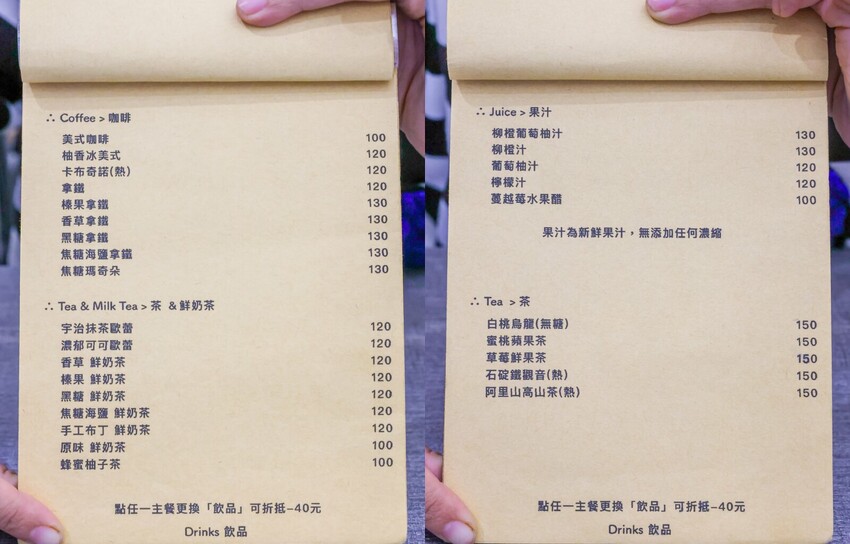 ∴ Coffee > 咖啡
美式咖啡 100
柚香冰美式 120
卡布奇諾(熱) 120
拿鐵 120
榛果拿鐵 130
香草拿鐵 130
黑糖拿鐵 130
焦糖海鹽拿鐵 130
焦糖瑪奇朵 130
∴ Tea & Milk Tea > 茶 & 鮮奶茶
宇治抹茶歐蕾 120
濃郁可可歐蕾 120
香草 鮮奶茶 120
榛果 鮮奶茶 120
黑糖 鮮奶茶 120
焦糖海鹽 鮮奶茶 120
手工布丁 鮮奶茶 120
原味 鮮奶茶 100
蜂蜜柚子茶 100
點任一主餐更換「飲品」可折抵-40元
Drinks 飲品
∴ Juice > 果汁
柳橙葡萄柚汁 130
柳橙汁 130
葡萄柚汁 120
檸檬汁 120
蔓越莓水果醋 100
果汁為新鮮果汁，無添加任何濃縮
∴ Tea > 茶
白桃烏龍(無糖) 150
蜜桃蘋果茶 150
草莓鮮果茶 150
石碇鐵觀音(熱) 150
阿里山高山茶(熱) 150
點任一主餐更換「飲品」可折抵-40元
Drinks 飲品